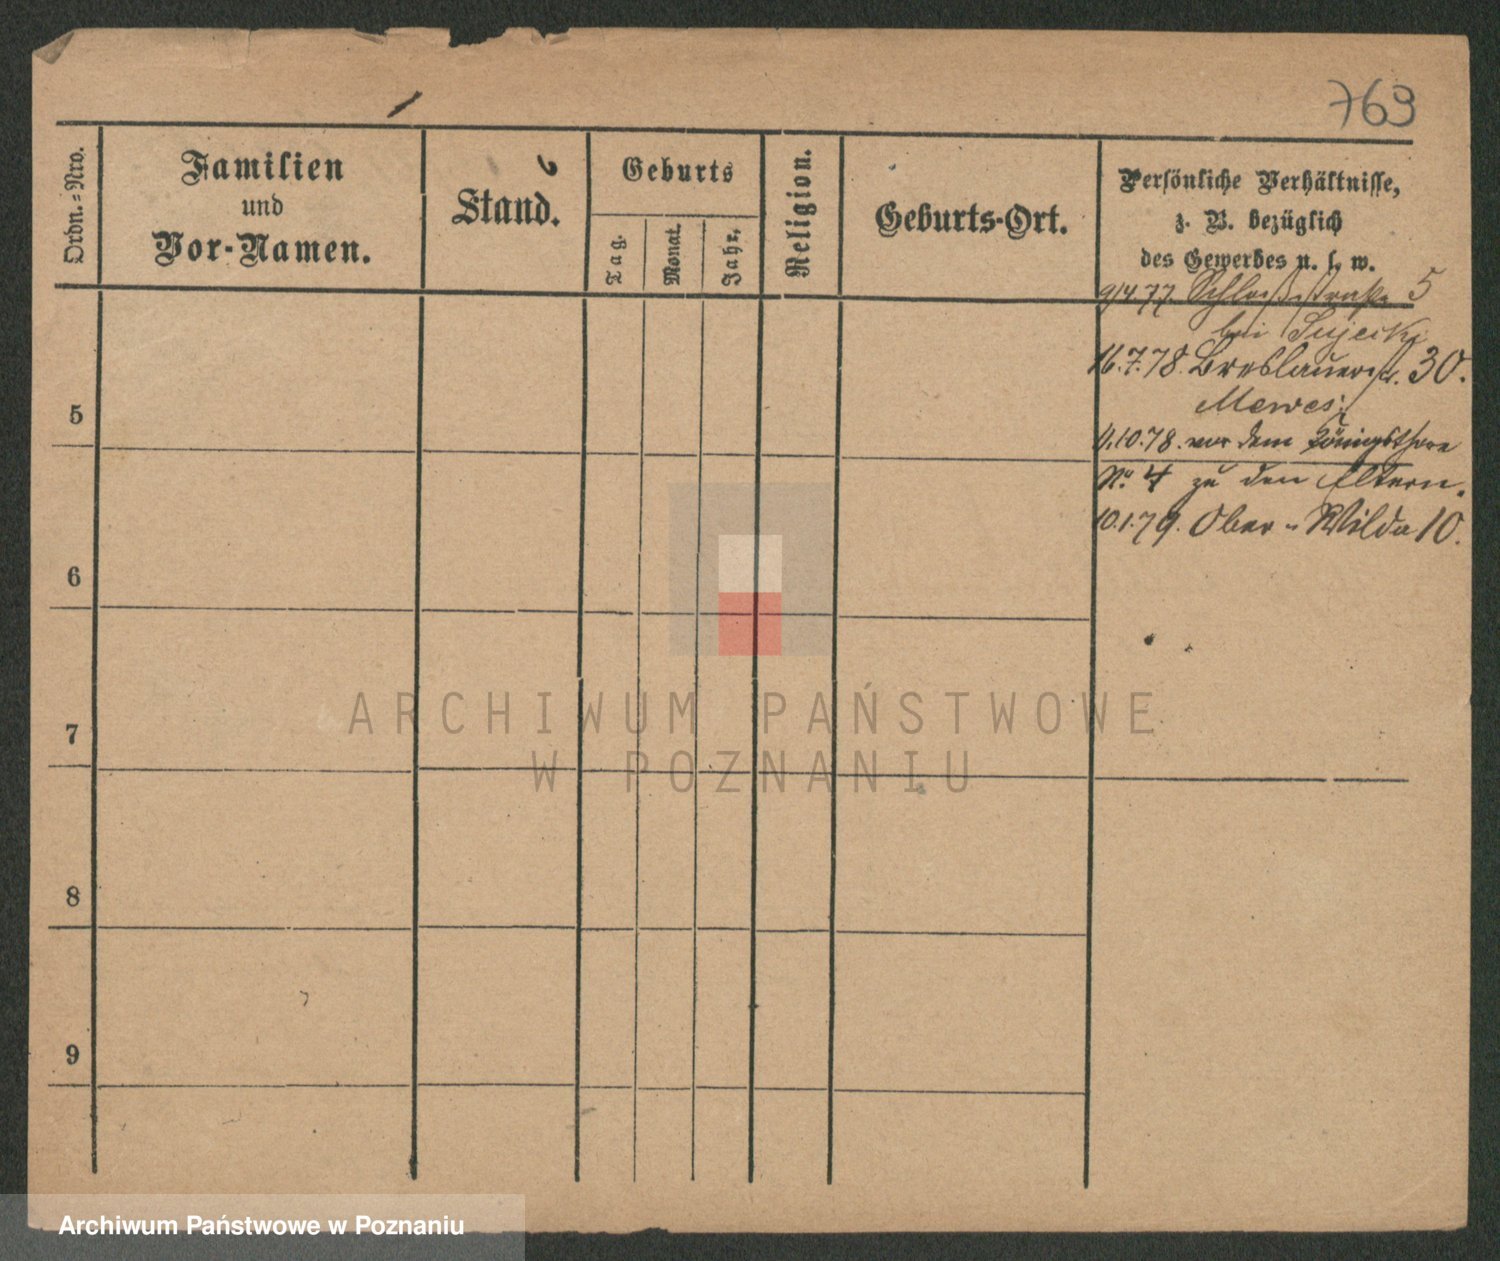 763
Ordn.-Nro.
Familien
und
Vor-Namen.
Stand.
Geburts
Tag.
Monat.
Jahr.
Religion.
Geburts-Ort.
Persönliche Verhältnisse,
z. B. bezüglich
des Gewerbes u. s. w.
9/4.77. Schloßstraße 5
bei Sujecki
16.7.78. Breslauerstr. 30.
Mewes.
4.10.78. vor dem Königsthore
No. 4 zu den Eltern.
10.1.79. Ober-Wilda 10.
5
6
7
8
9
ARCHIWUM PAŃSTWOWE
W POZNANIU
Archiwum Państwowe w Poznaniu